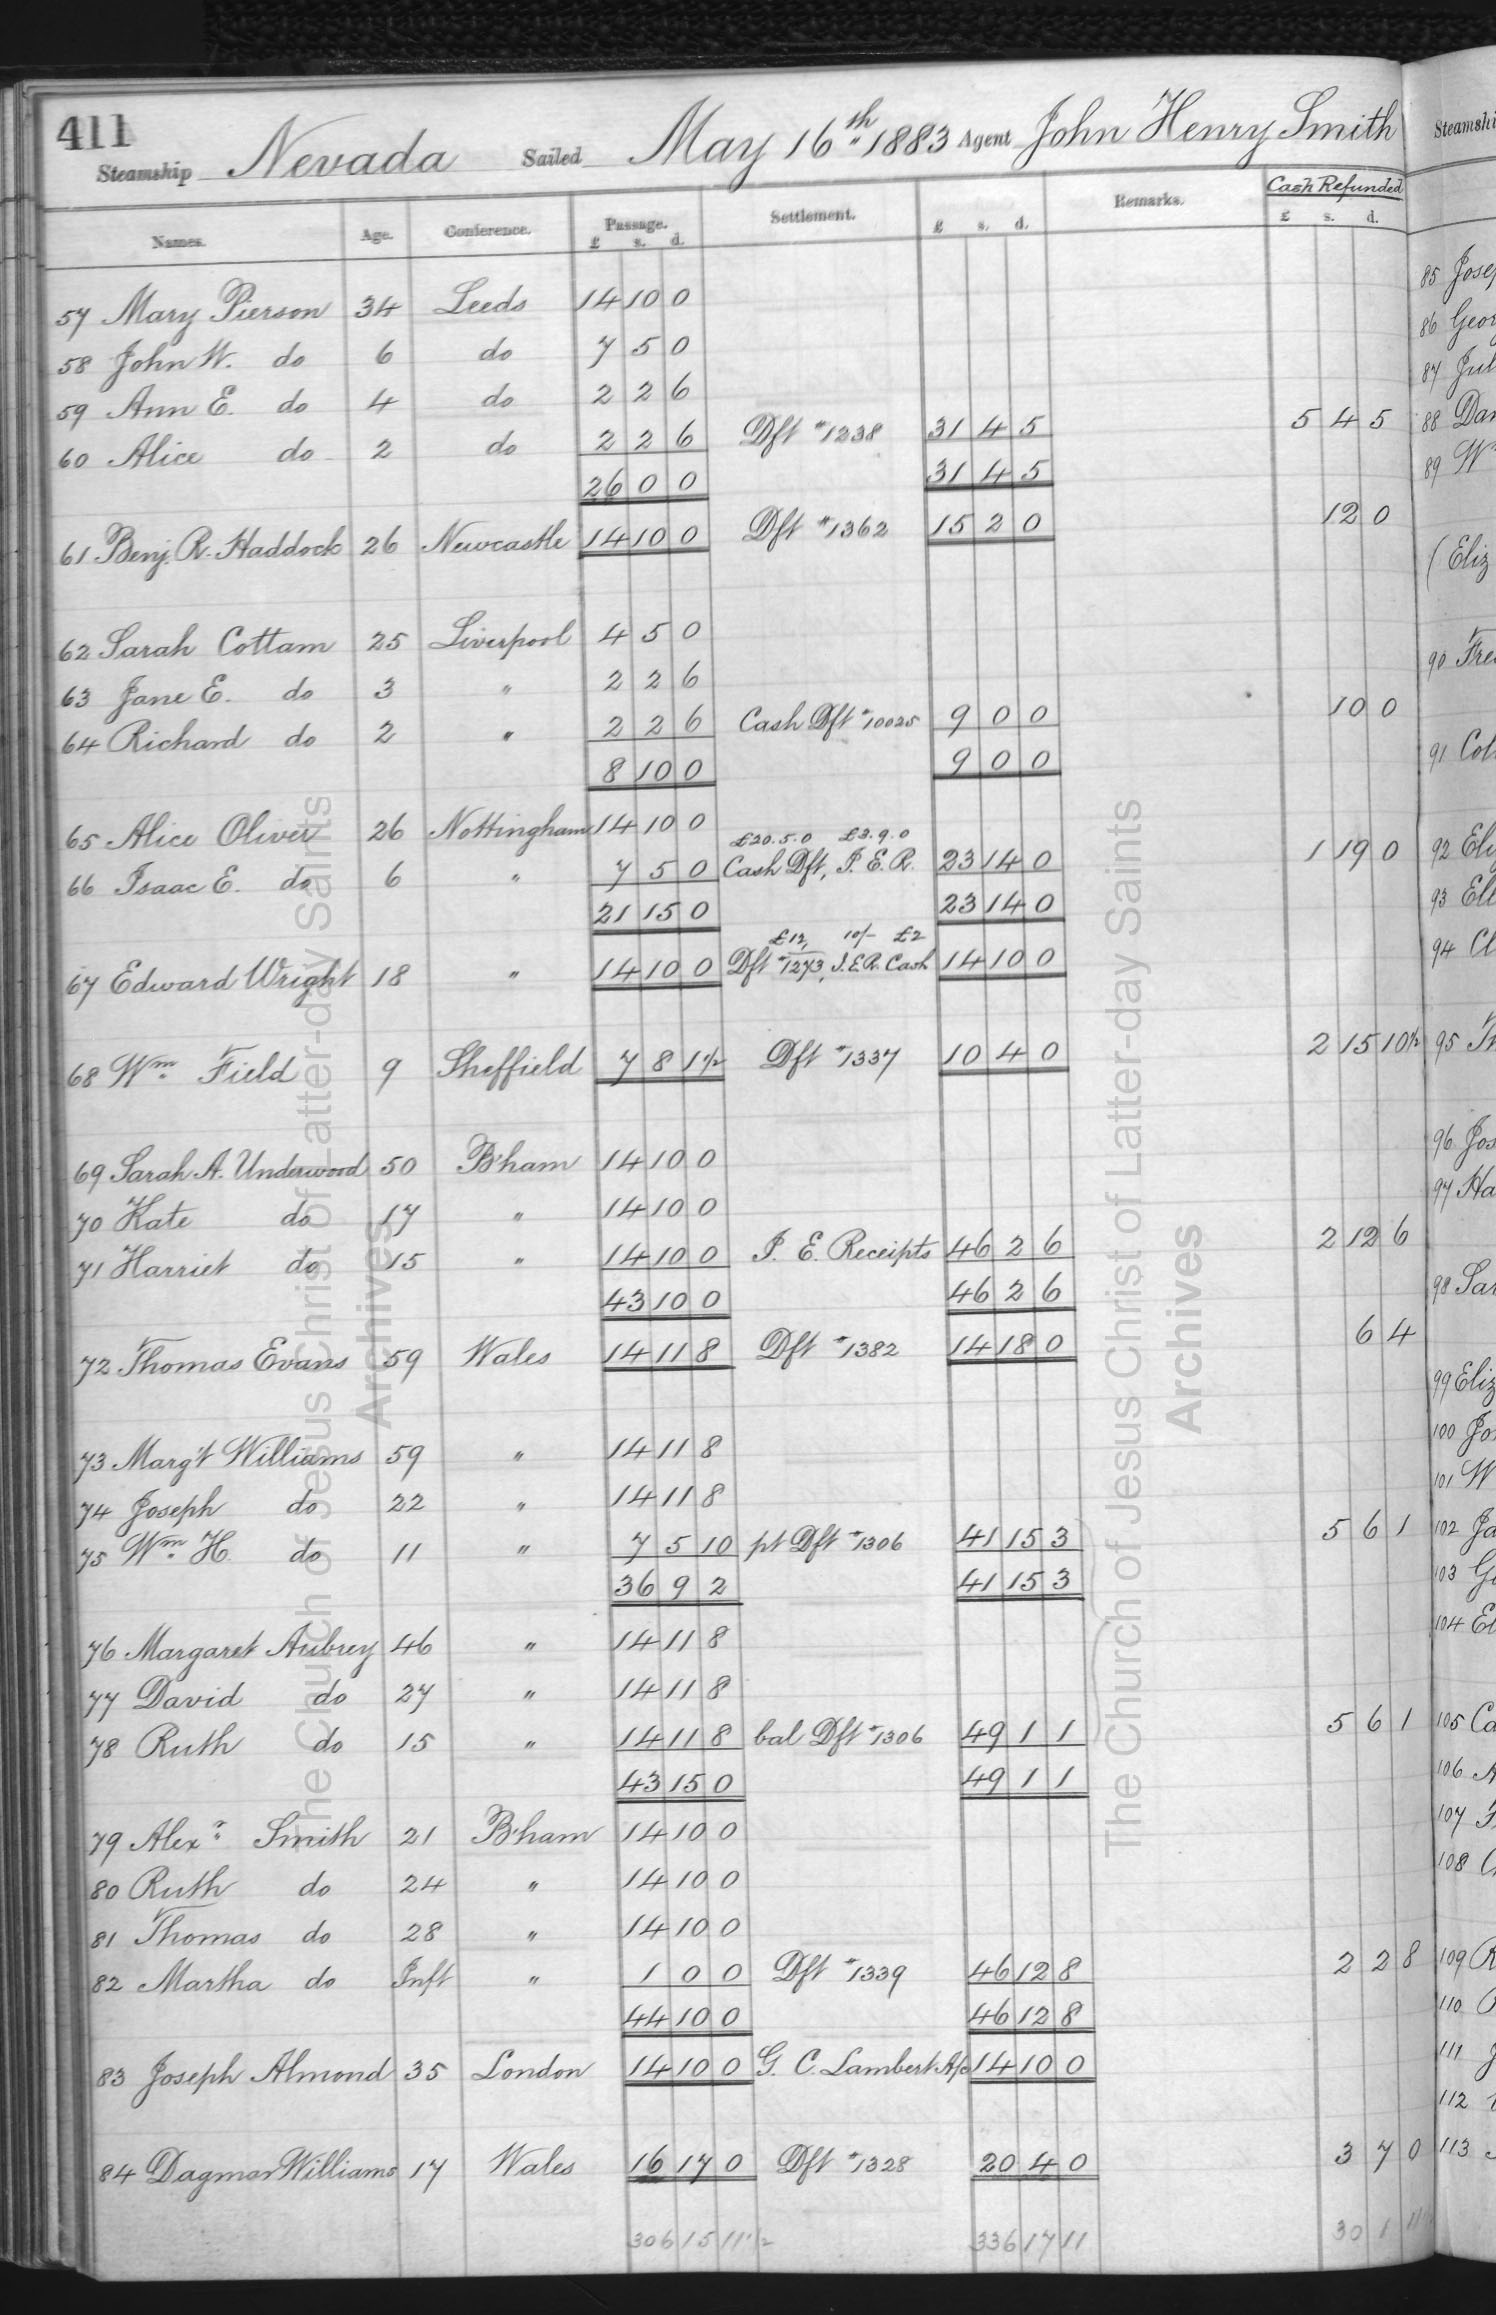 411
Steamship Nevada Sailed May 16th 1883 Agent John Henry Smith
Cash Refunded
Names. Age. Conference. Passage. Settlement. Remarks.
£ s. d. £ s. d. £ s. d.
57 Mary Pierson 34 Leeds 14 10 0
58 John W. do 6 do 7 5 0
59 Ann E. do 4 do 2 2 6
60 Alice do 2 do 2 2 6 Dft #1238 31 4 5 5 4 5
26 0 0 31 4 5
61 Benj. R. Haddock 26 Newcastle 14 10 0 Dft #1362 15 2 0 12 0
62 Sarah Cottam 25 Liverpool 4 5 0
63 Jane E. do 3 " 2 2 6
64 Richard do 2 " 2 2 6 Cash Dft #10025 9 0 0 10 0
8 10 0 9 0 0
65 Alice Oliver 26 Nottingham 14 10 0
£20.5.0 £3.9.0
66 Isaac E. do 6 " 7 5 0 Cash Dft, I.E.R. 23 14 0 1 19 0
21 15 0 23 14 0
£12, 10/- £2
67 Edward Wright 18 " 14 10 0 Dft #1273, I.E.R. Cash 14 10 0
68 Wm Field 9 Sheffield 7 8 1½ Dft #1337 10 4 0 2 15 10½
69 Sarah A. Underwood 50 B'ham 14 10 0
70 Kate do 17 " 14 10 0
71 Harriet do 15 " 14 10 0 I. E. Receipts 46 2 6 2 12 6
43 10 0 46 2 6
72 Thomas Evans 59 Wales 14 11 8 Dft #1382 14 18 0 6 4
73 Marg't Williams 59 " 14 11 8
74 Joseph do 22 " 14 11 8
75 Wm H. do 11 " 7 5 10 pt Dft #1306 41 15 3 5 6 1
36 9 2 41 15 3
76 Margaret Aubrey 46 " 14 11 8
77 David do 27 " 14 11 8
78 Ruth do 15 " 14 11 8 bal Dft #1306 49 1 1 5 6 1
43 15 0 49 1 1
79 Alexr Smith 21 B'ham 14 10 0
80 Ruth do 24 " 14 10 0
81 Thomas do 28 " 14 10 0
82 Martha do Inft " 1 0 0 Dft #1339 46 12 8 2 2 8
44 10 0 46 12 8
83 Joseph Almond 35 London 14 10 0 G. C. Lambert A/c 14 10 0
84 Dagmar Williams 17 Wales 16 17 0 Dft #1328 20 4 0 3 7 0
306 15 11½ 336 17 11 30 1 11½
The Church of Jesus Christ of Latter-day Saints
Archives
The Church of Jesus Christ of Latter-day Saints
Archives
85
86
87
88
89
90
91
92
93
94
95
96
97
98
99
100
101
102
103
104
105
106
107
108
109
110
111
112
113